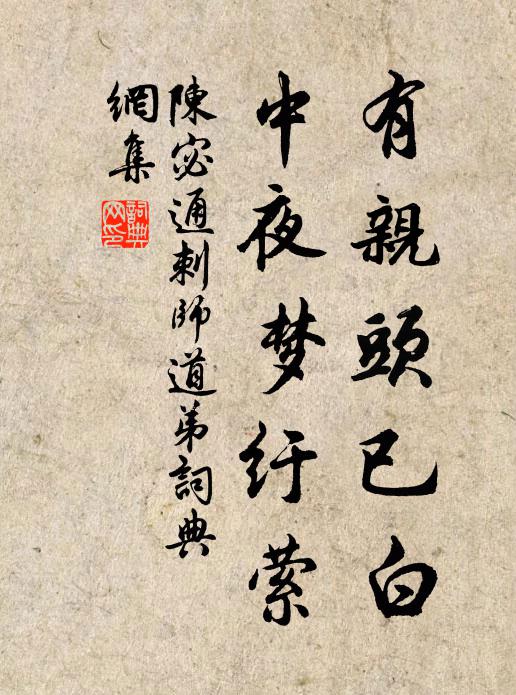 有親頭已白
中夜梦紆萦
陳宓通剌師道弟詞典
網集
詞典
网印